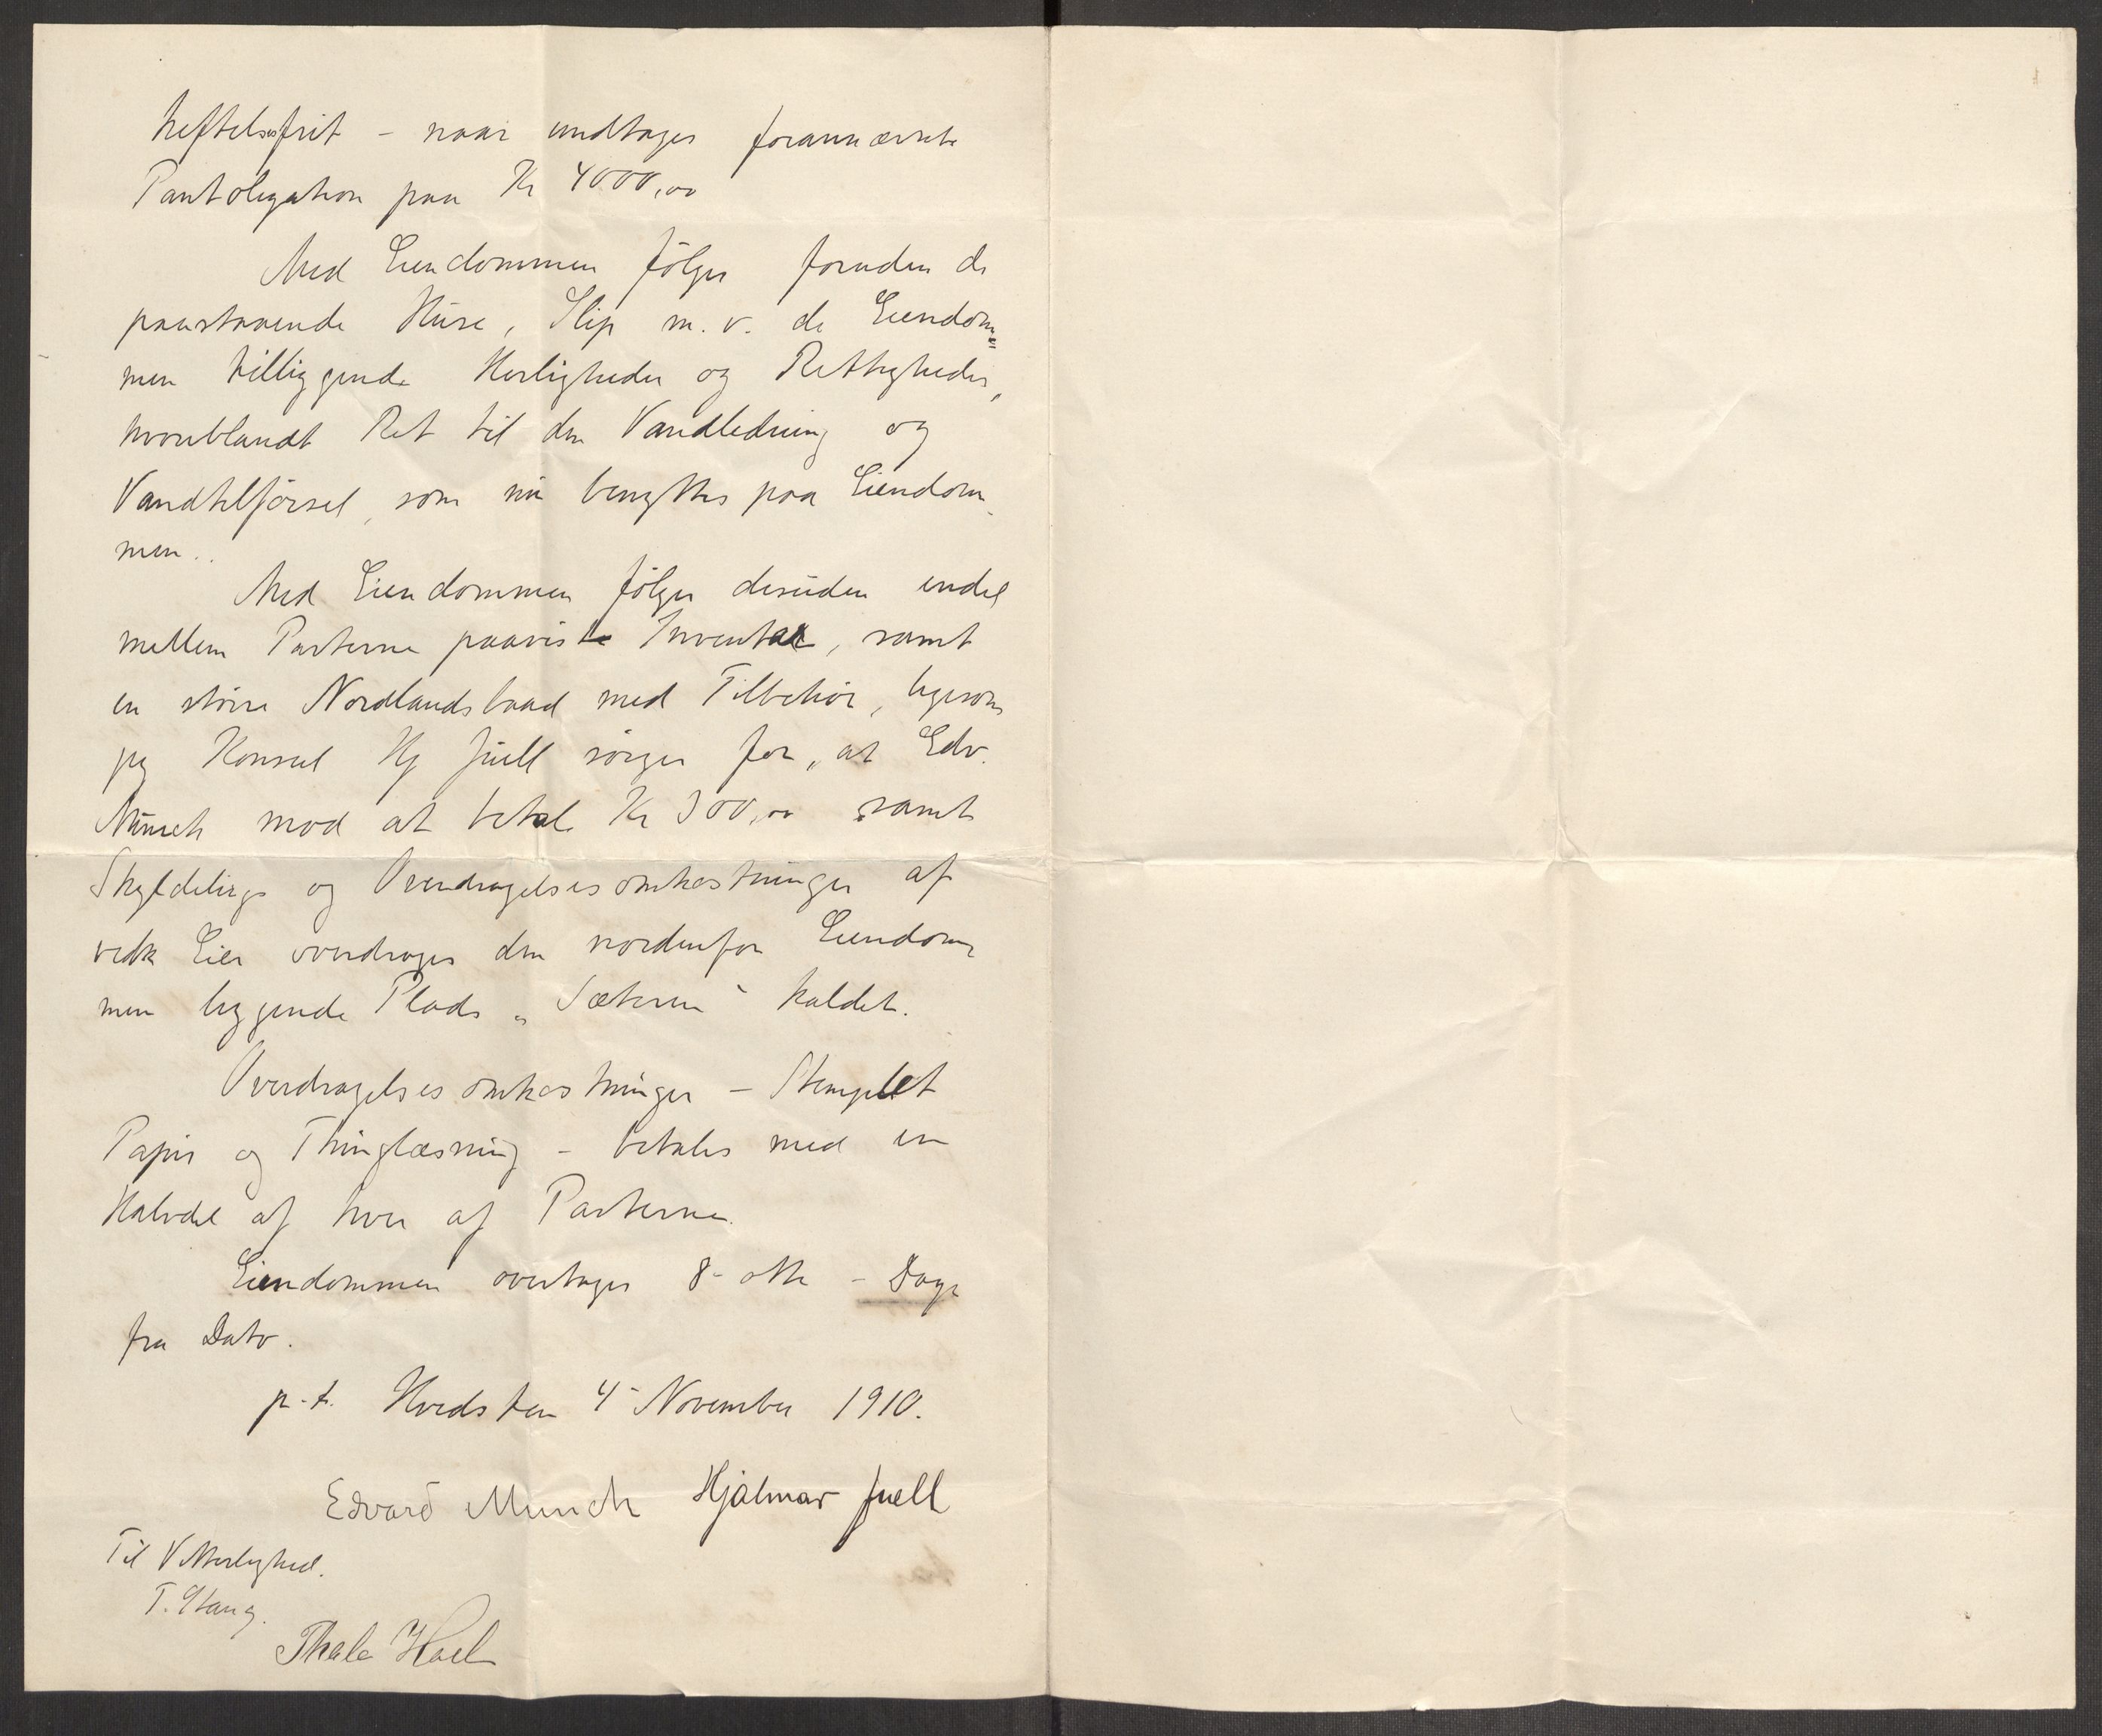 heftelsesfrit – naar undtages forannævnte
Pantobligation paa Kr 4000,00
Med Eiendommen følger foruden de
paastaaende Huse, Slip m. v. de Eiendom=
men tilliggende Herligheder og Rettigheder,
hvoriblandt Ret til den Vandledning og
Vandtilførsel, som nu benyttes paa Eiendom-
men..
Med Eiendommen følger desuden endel
mellem Parterne paaviste Inventar, samt
en større Nordlandsbaad med Tilbehör, ligesom
jeg Konsul Hj Juell sørger for, at Edv.
Munch mod at betale Kr 300,00 samt
Skyldelings og Overdragelsesomkostninger af
vedk Eier overdrages den nordenfor Eiendom
men liggende Plads „Sæteren“ kaldet.
Overdragelsesomkostninger – Stemplet
Papir og Thinglæsning – betales med en
Halvdel af hver af Parterne.
Eiendommen overtages 8 - otte - Dage
fra Dato.
p.t. Hvidsten 4 November 1910.
Edvard Munch Hjalmar Juell
Til Vitterlighed.
T. Stang.
Thala Hoel